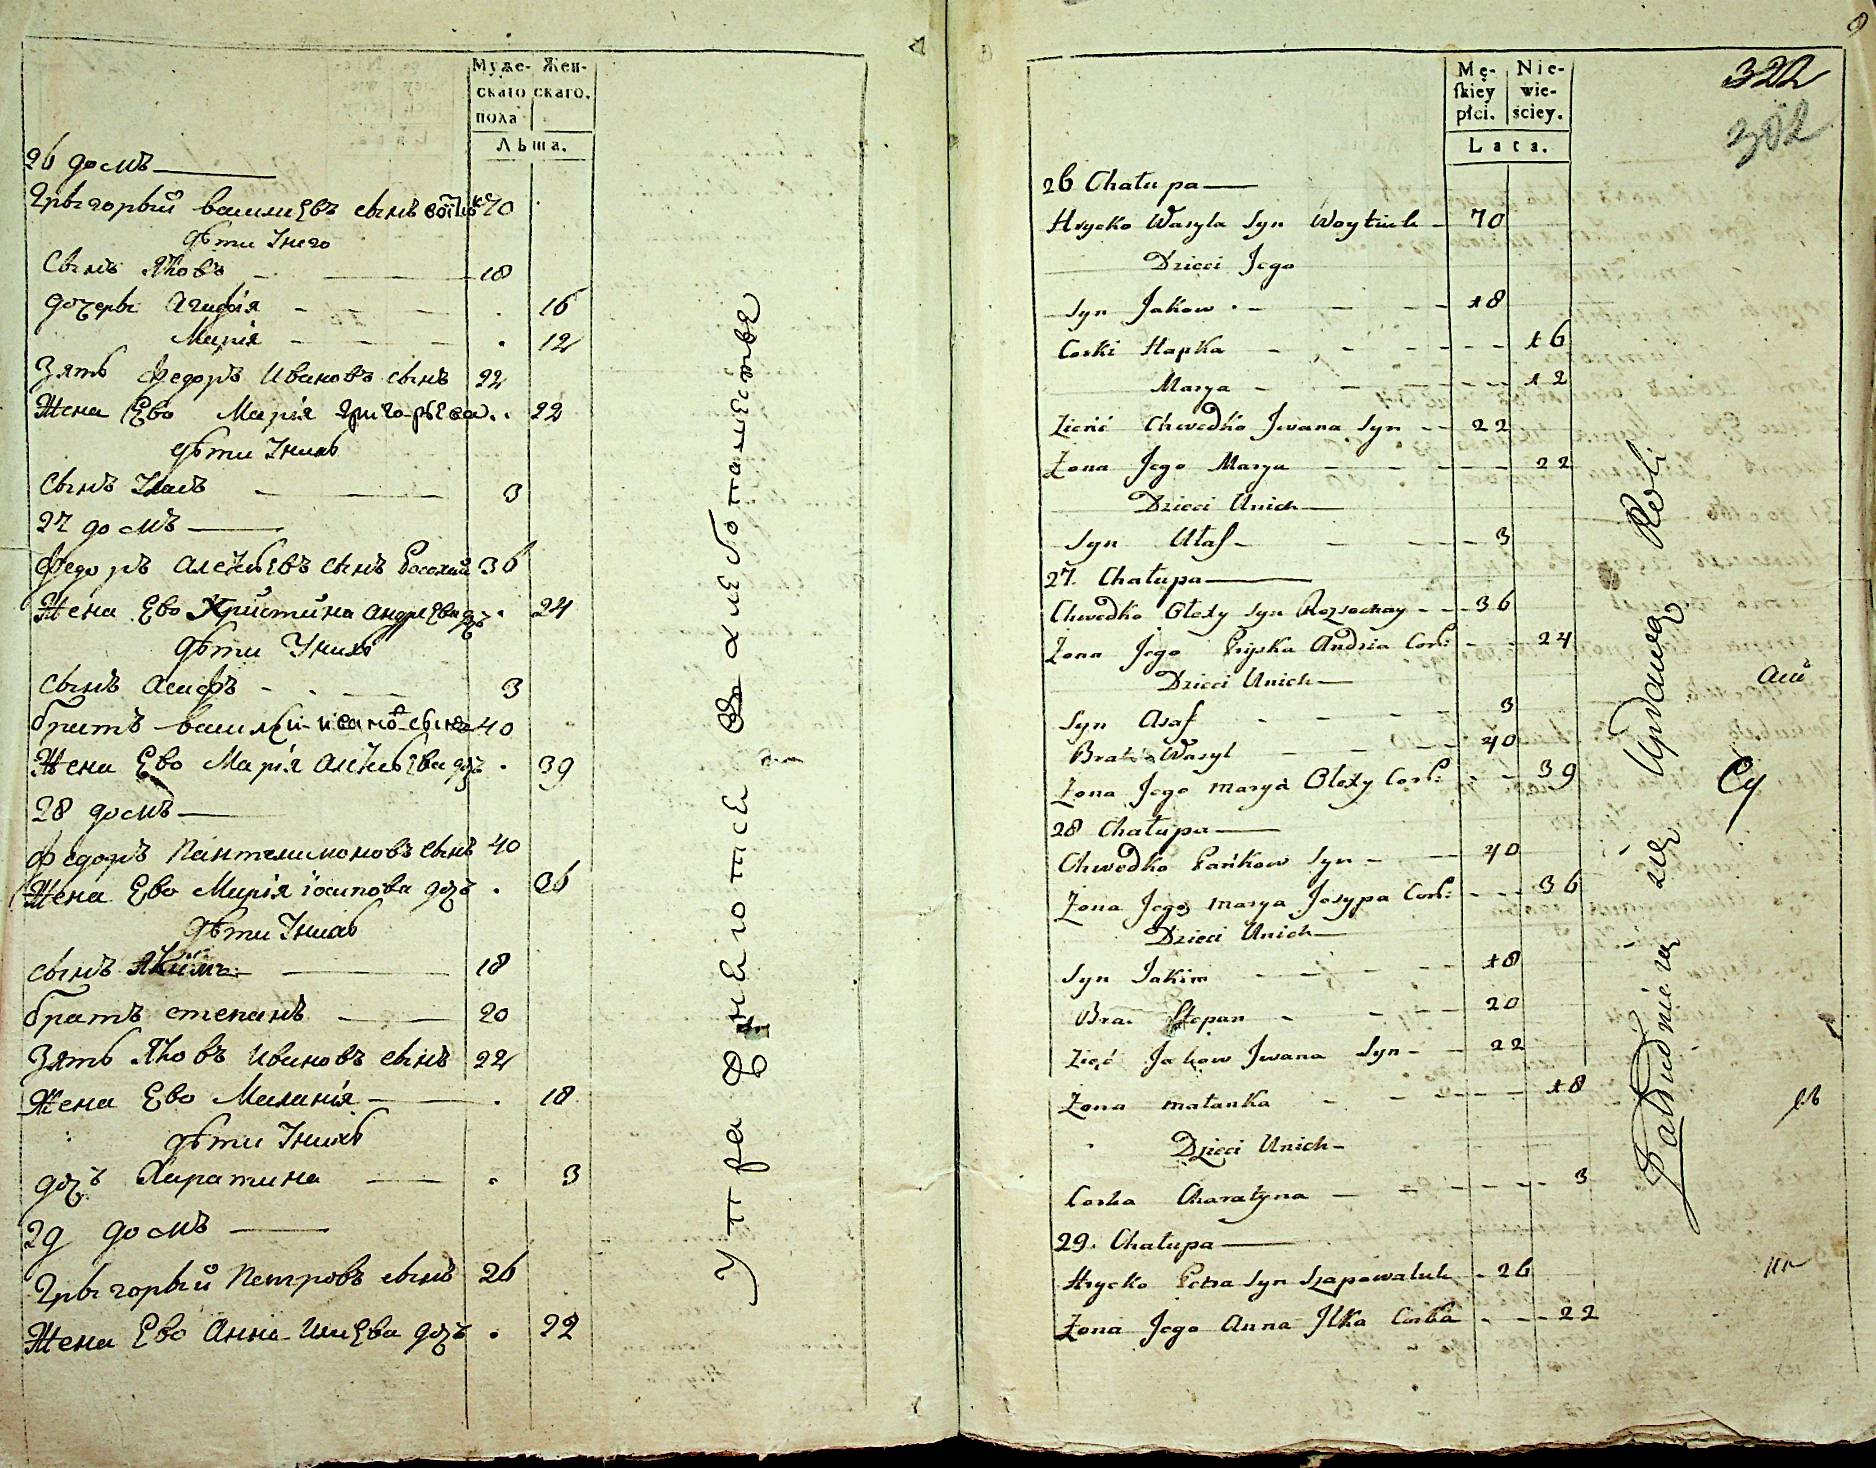 Муже- Жен-
скаго скаго.
пола
Лѣта.
26 домъ
Грыгорый василиевъ сынъ
дѣти Унего
Сынъ Яковъ 18
дочеры Агифія 16
Марія 12
Зять Федоръ Ивановъ сынъ 22
Жена Ево Марія григорьева 22
дѣти Унихъ
Сынъ Уласъ 3
27 домъ
Федоръ Алексѣевъ сынъ Росохай 36
Жена Ево Христина андреева дочъ 24
дѣти Унихъ
Сынъ Асафъ 3
братъ василей ивановъ сынъ 40
Жена Ево Марія Алексѣева дочъ 39
28 домъ
Федоръ Пантелимоновъ сынъ 40
Жена Ево Марія іосипова дочъ 36
дѣти Унихъ
сынъ Якимъ 18
братъ степанъ 20
Зять Яковъ Ивановъ сынъ 22
Жена Ево Маланія 18
дѣти Унихъ
дочъ Харатина 3
29 домъ
Грыгорый Петровъ сынъ 26
Жена Ево Анна Илиева дочъ 22
упражнеютсе в хлебопашестве
322
302
Mę- Nie-
skiey wie-
płci. ściey.
Lata.
26 Chałupa
Hrycko Wasyla Syn Woytiuk 70
Dzieci Jego
Syn Jakow 18
Corki Hapka 16
Marya 12
Zieńć Chwedko Jwana Syn 22
Zona Jego Marya 22
Dzieci Unich
Syn Ułas 3
27. Chałupa
Chwedko Ołexy Syn Rozsochay 36
Zona Jego Pryska Andria Cork: 24
Dzieci Unich
Syn Asaf 3
Brat Wasyl 40
Zona Jego Marya Olexy Cork: 39
28 Chałupa
Chwedko Pańkow Syn 40
Zona Jego Marya Josypa Cork: 36
Dzieci Unich
Syn Jakim 18
Brat Stepan 20
Zięć Jakow Jwana Syn 22
Zona Małanka 18
Dzieci Unich
Corka Charatyna 3
29. Chałupa
Hrycko Petra Syn Szapowaluk 26
Zona Jego Anna Jlka Corka 22
Zatrudnieią się Uprawą Roli